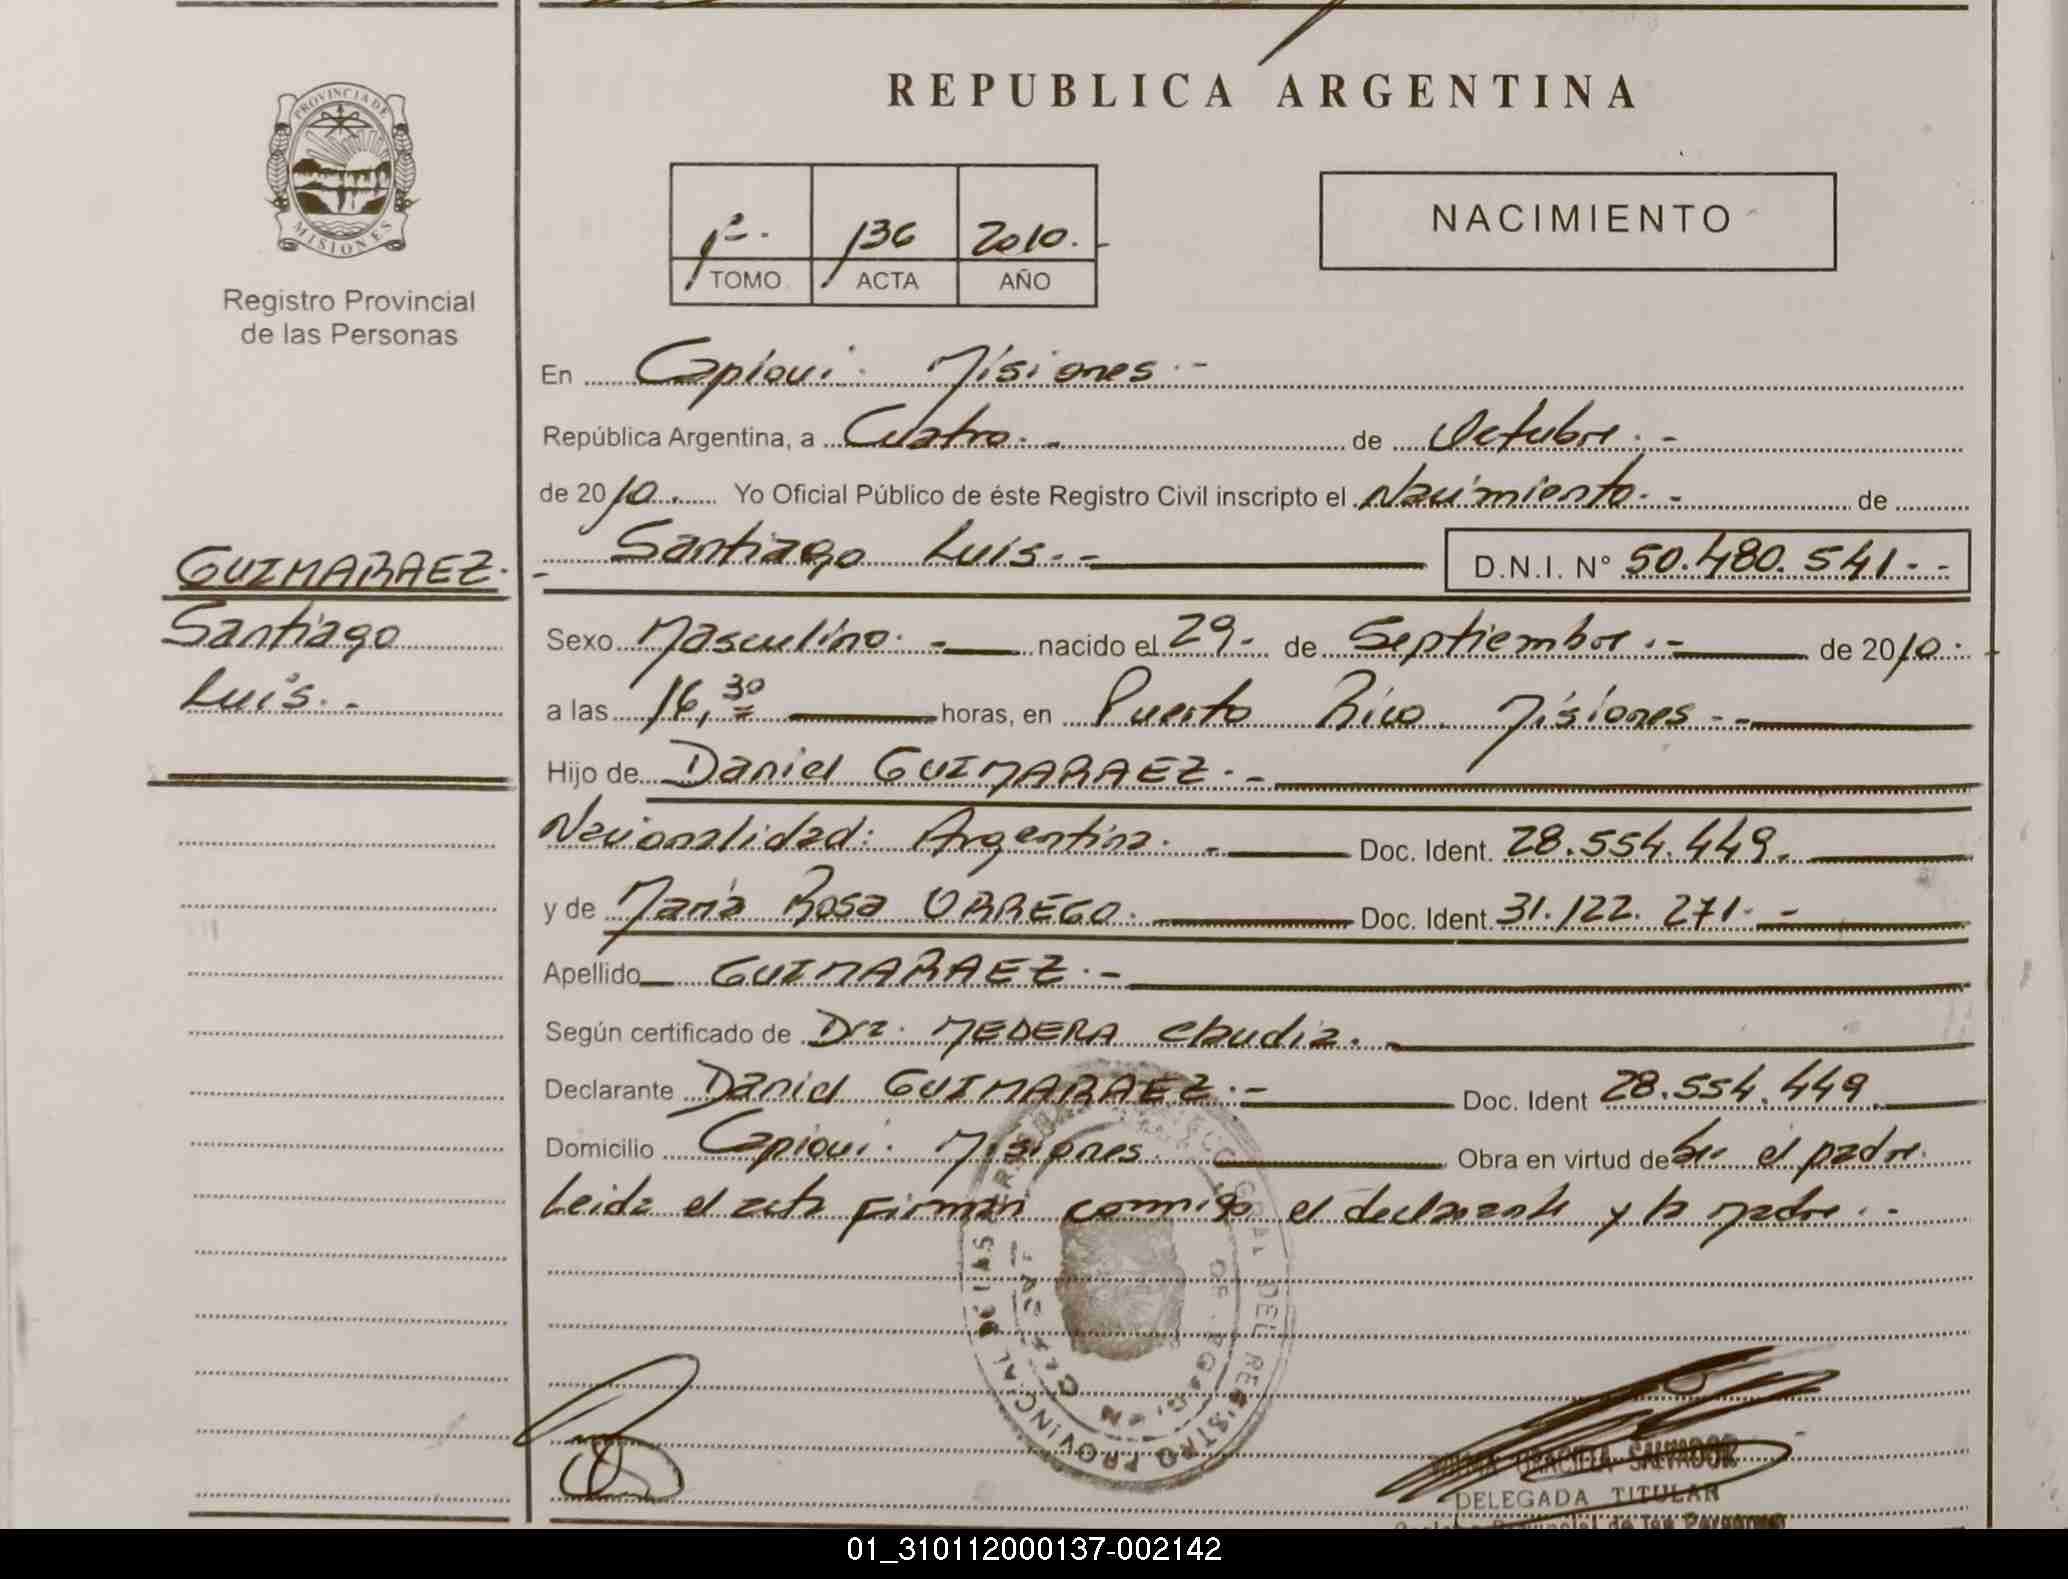 PROVINCIA DE
MISIONES
Registro Provincial
de las Personas
GUIMARAEZ.
Santiago
Luis. -
REPUBLICA ARGENTINA
1º. 136 2010. -
TOMO ACTA AÑO
NACIMIENTO
En Capioui. Misiones. -
República Argentina, a Cuatro. - de Octubre. -
de 2010. Yo Oficial Público de éste Registro Civil inscripto el Nacimiento. - de
Santiago Luis. - D.N.I. N° 50.480.541. -
Sexo Masculino. - nacido el 29- de Septiembre. - de 2010.
a las 16,30 horas, en Puerto Rico. Misiones - -
Hijo de Daniel GUIMARAEZ. -
Nacionalidad: Argentina. - Doc. Ident. 28.554.449.
y de Maria Rosa ORREGO. Doc. Ident. 31.122.271. -
Apellido GUIMARAEZ. -
Según certificado de Dra. MEDERA Claudia.
Declarante Daniel GUIMARAEZ. - Doc. Ident 28.554.449
Domicilio Capioui. Misiones. Obra en virtud de Ser el padre.
Leida el acta firman conmigo el declarante y la madre. -
GRACIELA SALVADOR
DELEGADA TITULAR
Provincial de las Personas
01_310112000137-002142